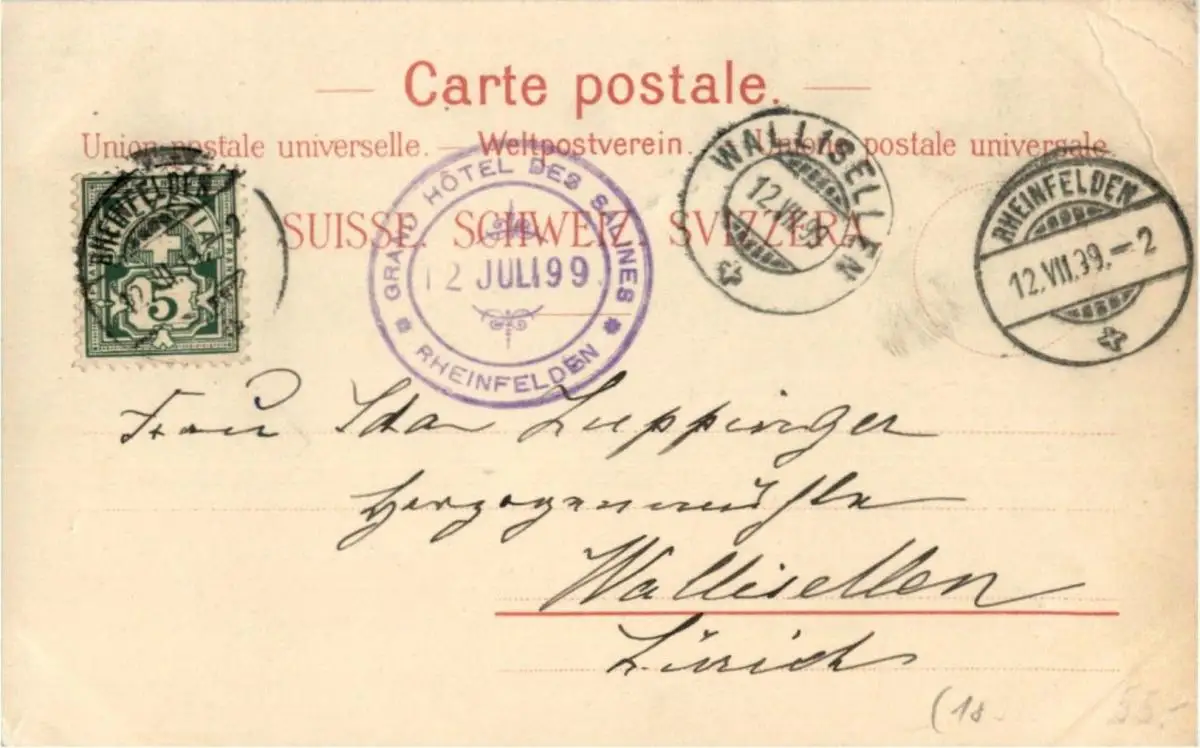 Carte postale.
Union postale universelle. — Weltpostverein. — Unione postale universale
SUISSE. SCHWEIZ. SVIZZERA
RHEINFELDEN
5
GRAND HÔTEL DES SALINES
12 JULI 99
RHEINFELDEN
WALLISELLEN
12.VII.99
RHEINFELDEN
12.VII.99.–2
Frau Ida Luppinger
Herzogenmühle
Wallisellen
Zürich
(18
55.-